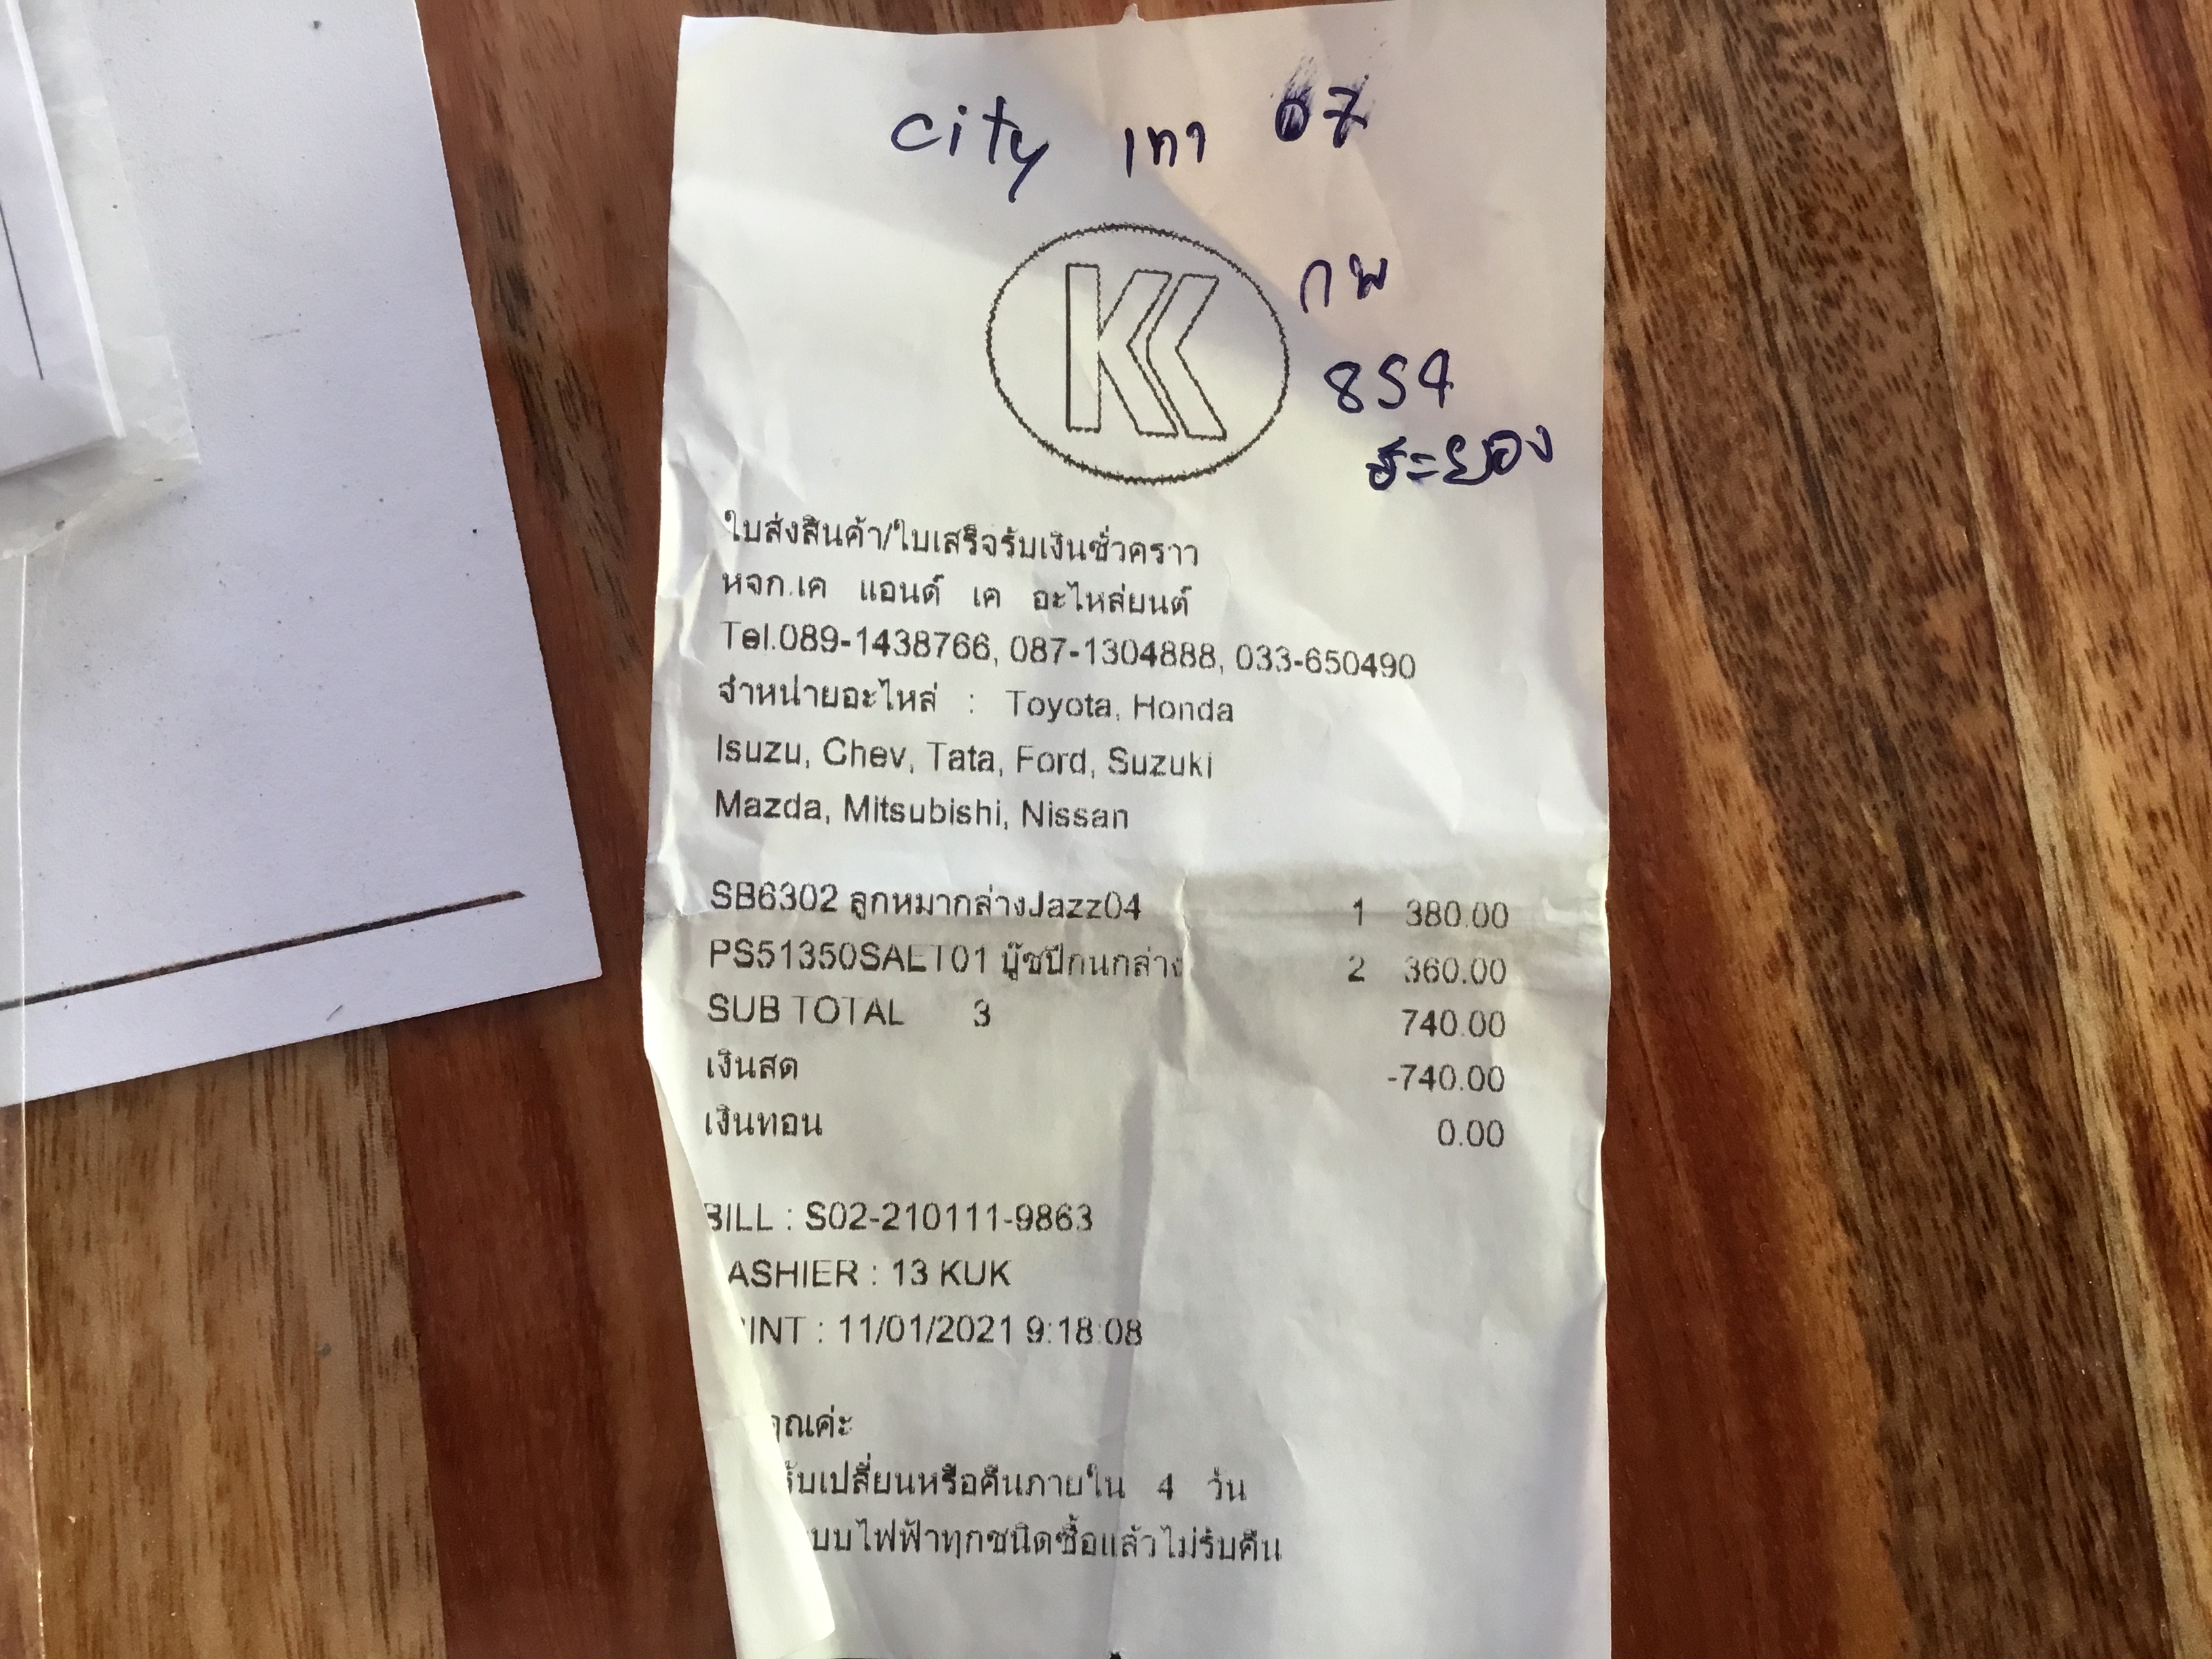 city เทา 07
KK
กพ
854
ระยอง
ใบส่งสินค้า/ใบเสร็จรับเงินชั่วคราว
หจก.เค แอนด์ เค อะไหล่ยนต์
Tel.089-1438766, 087-1304888, 033-650490
จำหน่ายอะไหล่ : Toyota, Honda
Isuzu, Chev, Tata, Ford, Suzuki
Mazda, Mitsubishi, Nissan
SB6302 ลูกหมากล่างJazz04 1 380.00
PS51350SAET01 บู๊ชปีกนกล่าง 2 360.00
SUB TOTAL 3 740.00
เงินสด -740.00
เงินทอน 0.00
BILL : S02-210111-9863
ASHIER : 13 KUK
INT : 11/01/2021 9:18:08
คุณค่ะ
รับเปลี่ยนหรือคืนภายใน 4 วัน
ะบบไฟฟ้าทุกชนิดซื้อแล้วไม่รับคืน